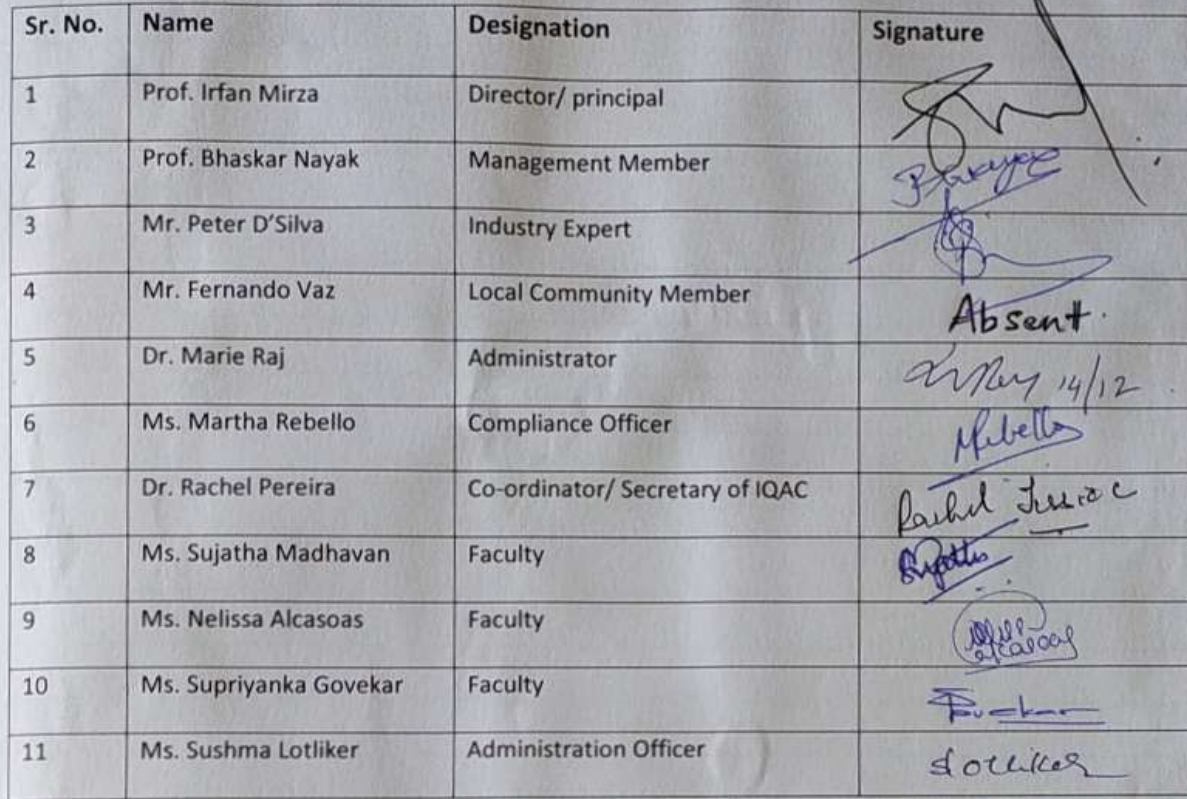 Sr. No. Name Designation Signature
1 Prof. Irfan Mirza Director/ principal
2 Prof. Bhaskar Nayak Management Member
3 Mr. Peter D’Silva Industry Expert
4 Mr. Fernando Vaz Local Community Member Absent.
5 Dr. Marie Raj Administrator 14/12
6 Ms. Martha Rebello Compliance Officer
7 Dr. Rachel Pereira Co-ordinator/ Secretary of IQAC Rachel
8 Ms. Sujatha Madhavan Faculty
9 Ms. Nelissa Alcasoas Faculty
10 Ms. Supriyanka Govekar Faculty
11 Ms. Sushma Lotliker Administration Officer